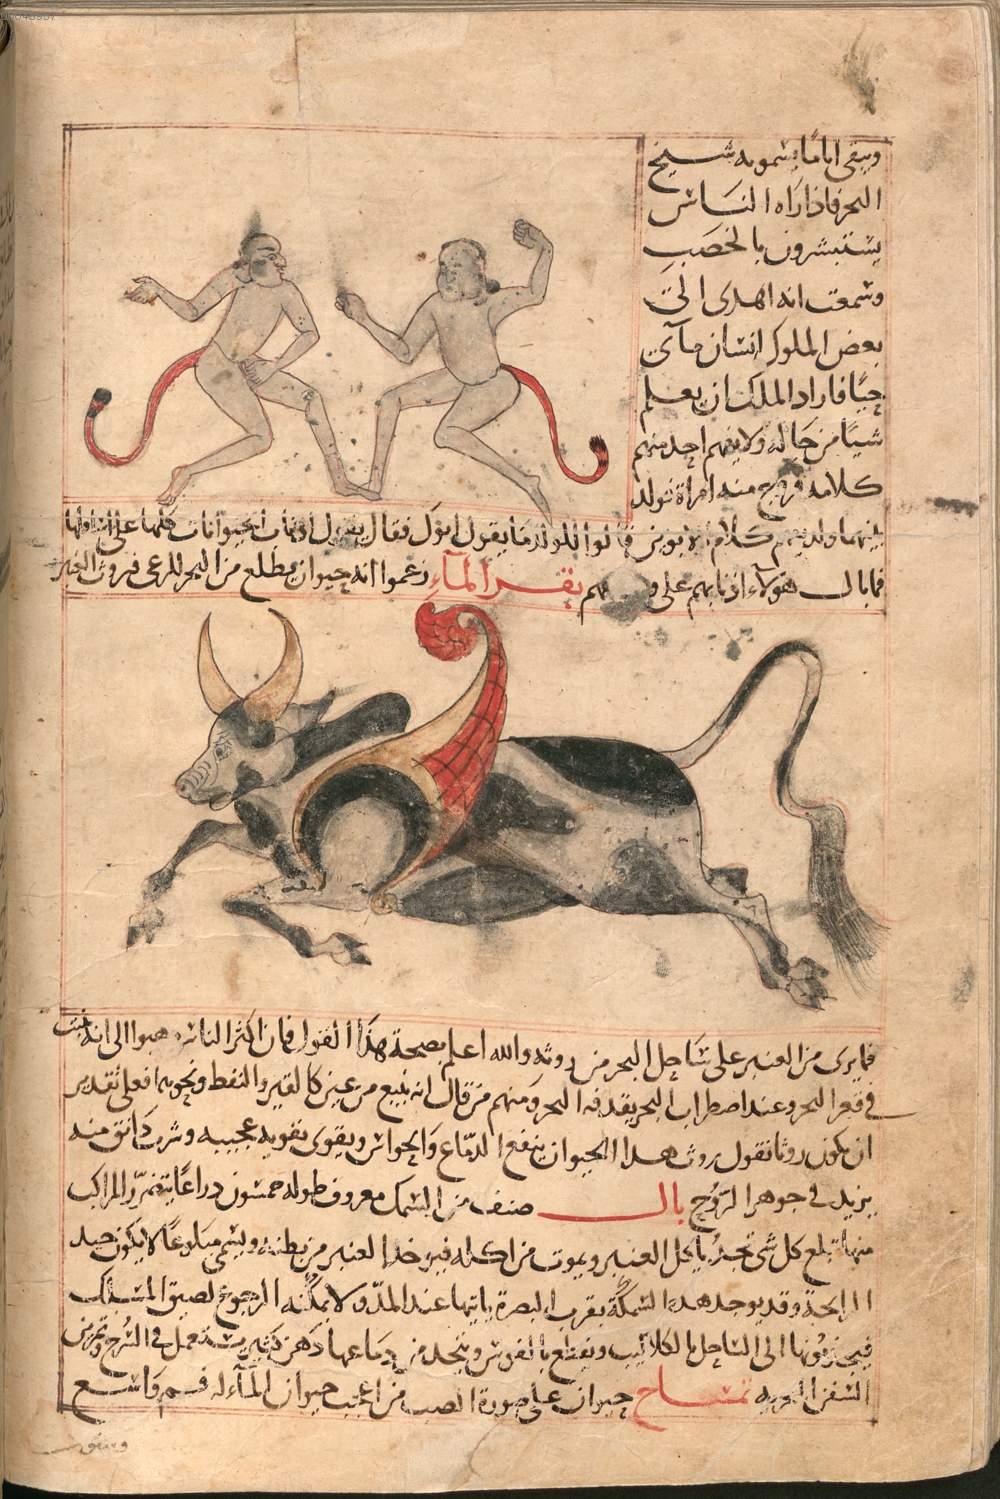 ويبقى اياما يسمونه شيخ
البحر فاذا راه الناس
يستبشرون بالخصب
وسمعت انه اهدى الى
بعض الملوك انسان مآى
حيًا فاراد الملك ان يعلم
شيًا من حاله ولا يفهم احد منهم
كلامه فزوج منه امراة فولد
بينهما ولد يفهم كلام الابوين فقالوا للولد ما يقول ابوك فقال يقول اذناب الحيوانات كلها على اسافلها
فما بال هؤلاء اذنابهم على وجوههم بقر المآء زعموا انه حيوان يطلع من البحر للرعى فروث العنبر
فما يرى من العنبر على ساحل البحر من روثه والله اعلم بصحة هذا القول فان اكثر الناس ذهبوا الى انه ينبت
فى قعر البحر وعند اضطراب البحر يقذفه البحر ومنهم من قال انه ينبع من عين كالقير والنفط ونحوهما فعلى تقدير
ان يكون روثا نقول روث هذا الحيوان ينفع الدماغ والحواس ويقوى تقوية عجيبة وشرب دانق منه
يزيد فى جوهر الروح بال صنف من السمك معروف طوله خمسون ذراعًا يتضرر المراكب
منها تبلع كل شى تجد ياكل العنبر ويموت من اكله فيوخذ العنبر من بطنه ويسمى مبلوعًا لا يكون جيد
الرايحة وقد يوجد هذه السمكة بقرب البصرة ياتيها عند المد ولا يمكنه الرجوع لضيق المسلك
فيجذبونها الى الساحل بالكلاليب ويقطع بالفوس ويتخذ من دماغها دهن كثير يستعمل فى السرج وتمرين
السفن البحرية تمساح حيوان على صورة الضب من اعجب حيوان المآء له فم واسع
وستون